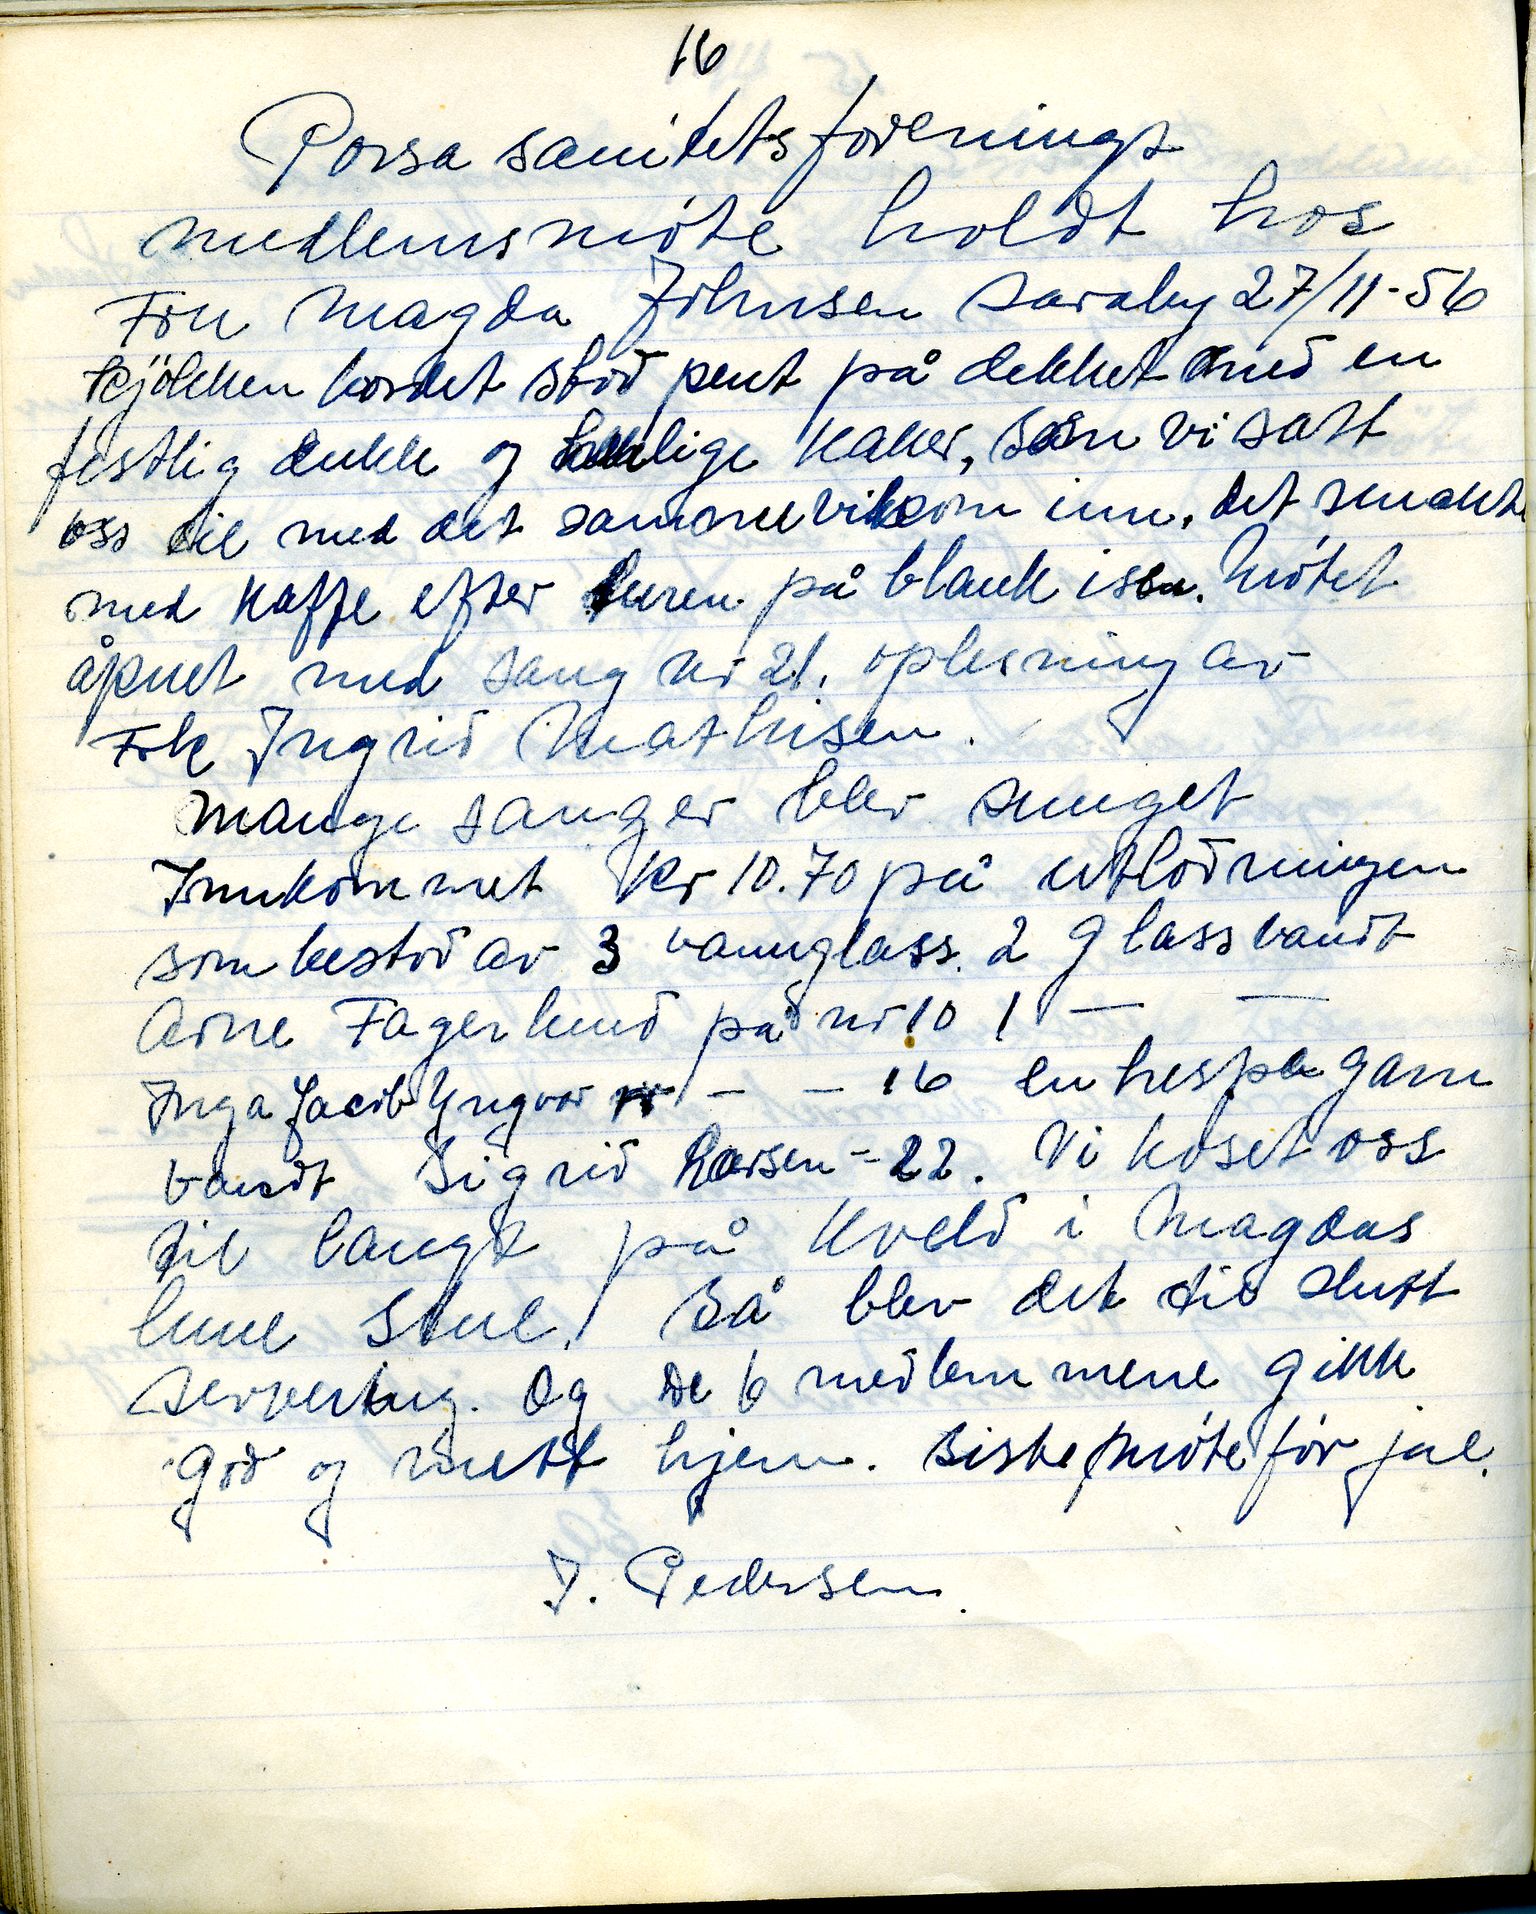 16
Porsa sanitetsforenings
medlemsmöte holdt hos
Fru Magda Johnsen Saraby 27/11-56
kjökken bordet stod pent på dekket med en
festlig dukk og lige kaker, som vi satt
oss til med det samme vi kom inn. det smakte
med kaffe efter turen på blank isen. Mötet
åpnet med sang nr 21. oplesning av
Frk Ingrid Mathisen.
Mange sanger blev sunget
Innkommet kr 10.70 på utlodningen
som bestod av 3 vannglass. 2 glass vandt
Arne Fagerlund på nr 10 1 — —
Inga Jacob Yngvar — — 16 en hespe garn
vandt Sigrid Larsen - 22. Vi koset oss
til langt på kveld i Magdas
lune stue. Så blev det til slutt
servering. Og de 6 medlemmene gikk
god og mett hjem. Siste möte för jul.
J. Pedersen.